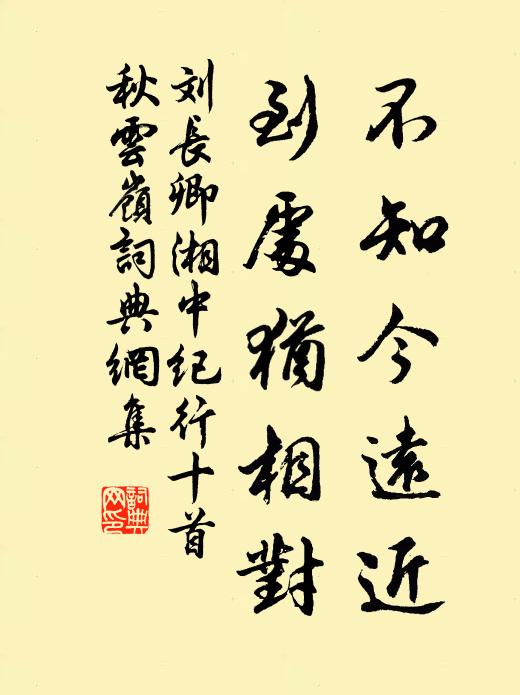 不知今遠近
到處猶相對
刘長卿湘中纪行十首
秋雲嶺詞典網集
詞典網印